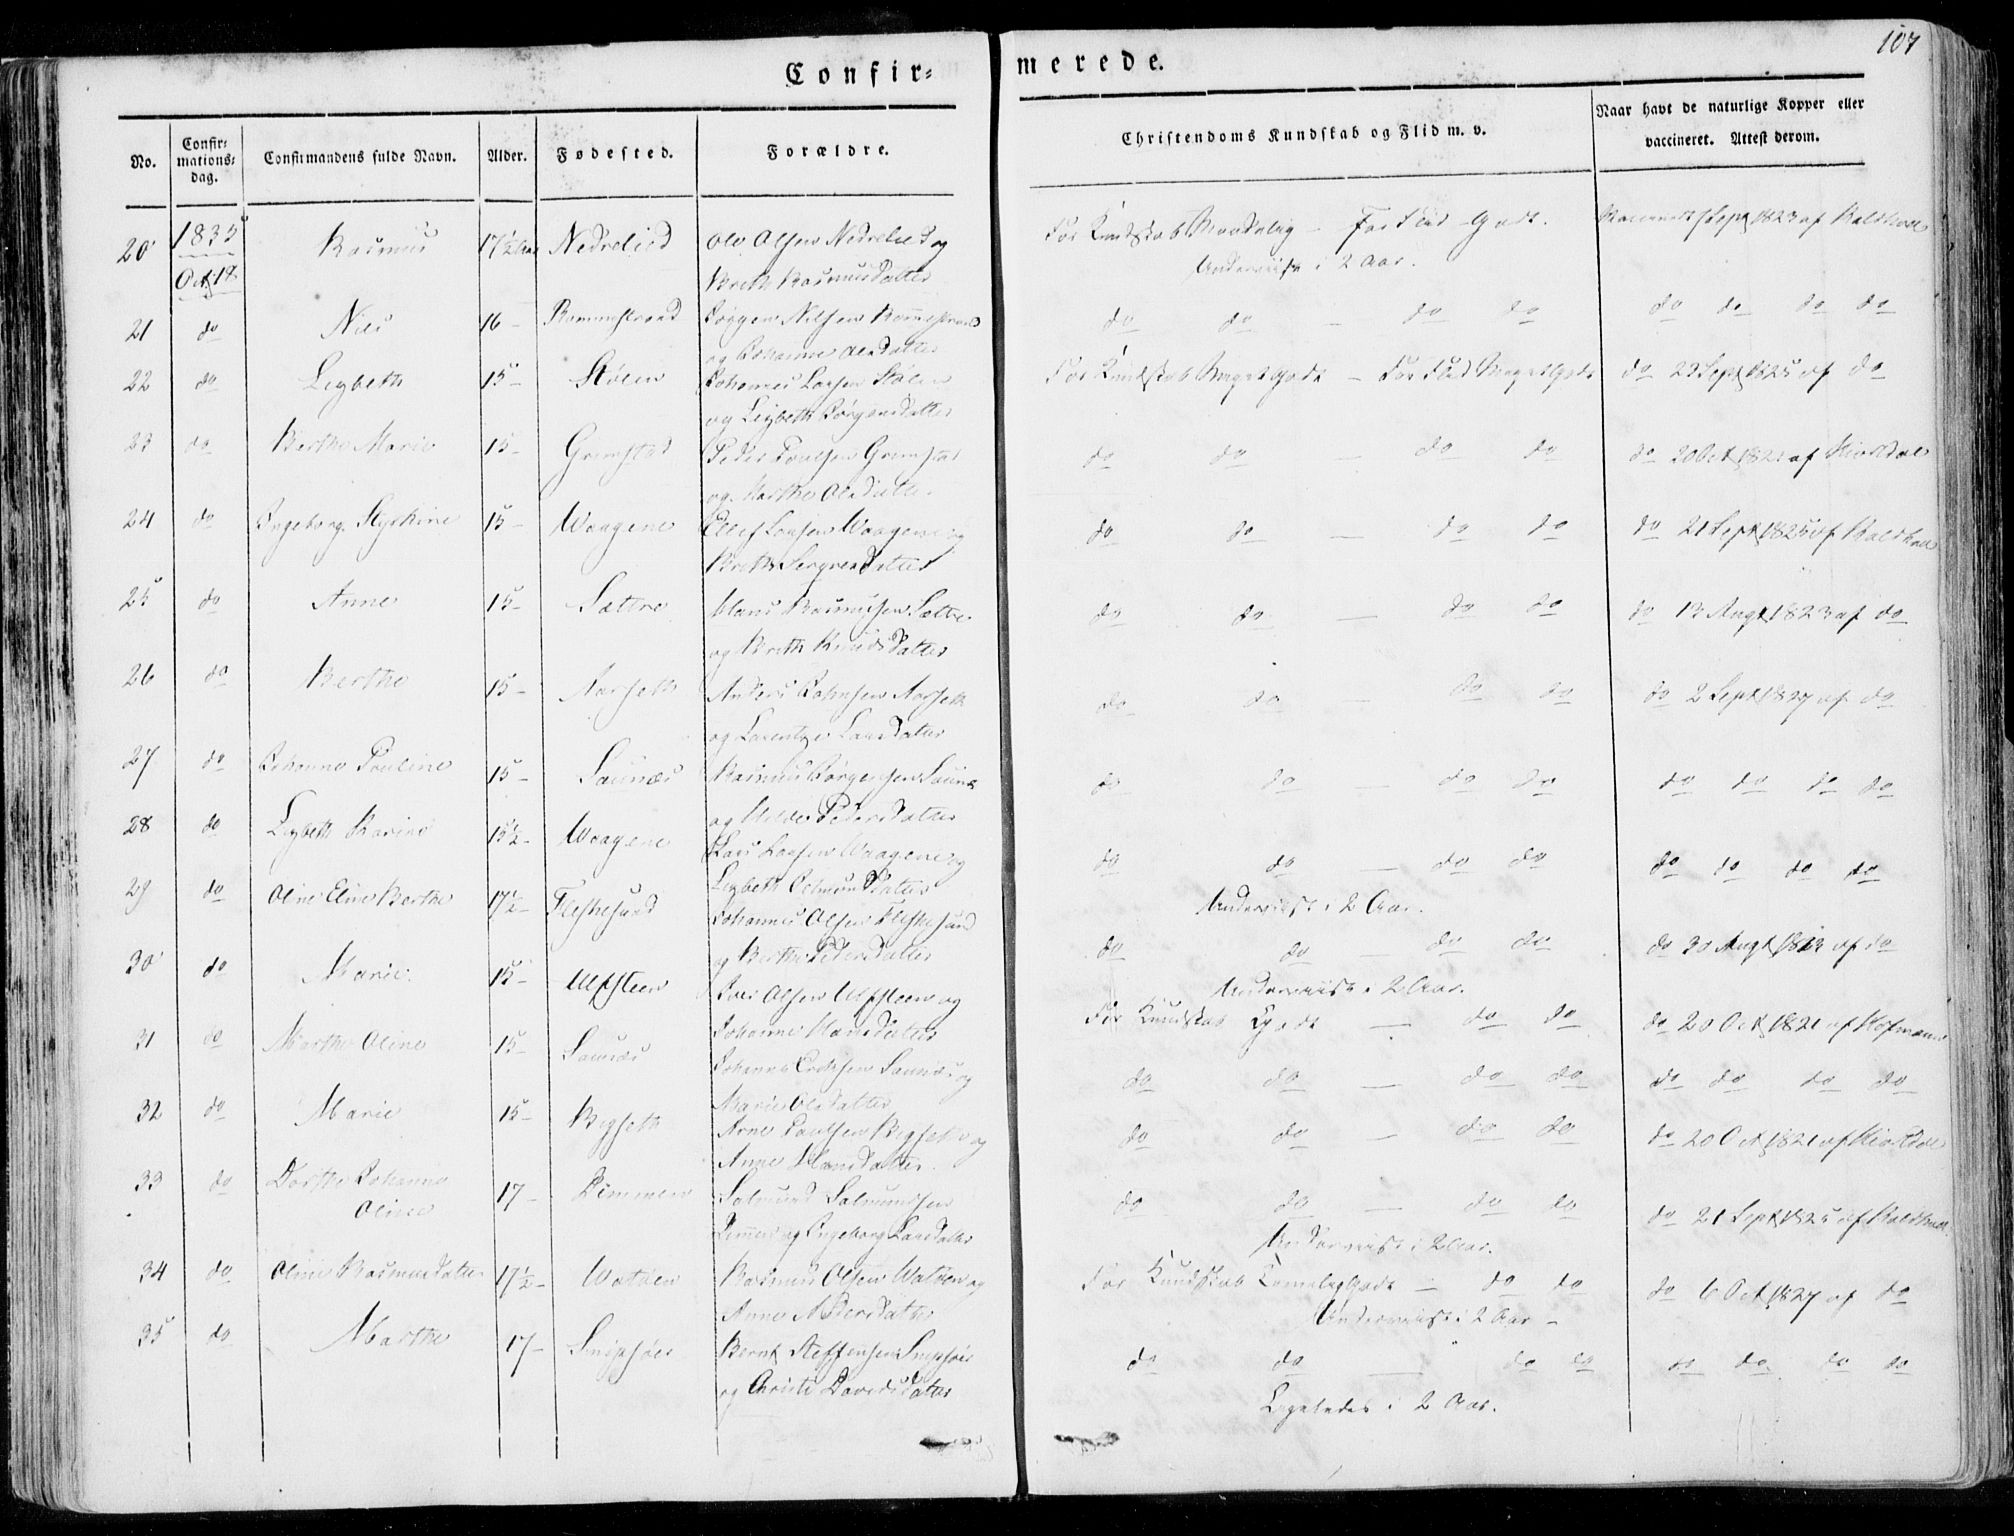 107
Confir- merede.
No. Confir-mations-dag. Confirmandens fulde Navn. Alder. Fødested. Forældre. Christendoms Kundskab og Flid m. v. Naar havt de naturlige Kopper eller vaccineret. Attest derom.
20 1835 Octb 18 Rasmus 17½ Aar Nedrelied Ole Olsen Nedrelied og For Kundskab Maadelig - For Flid Godt. Sept 1823 af
Brith Rasmusdatter Underviist i 2 Aar.
21 do Nils 16 - Rammestrand Jørgen Nilsen do do - do do do do do do
og Johanne Olsdatter
22 do Lisbeth 15 - Stølen Johannes Larsen Stølen For Kundskab Meget Godt - For Flid Meget Godt do 29 Sept 1825 af do
og Lisbeth Jørgensdatter
23 do Berthe Marie 15 - Grimstad Peder Poulsen Grimstad do do - do do do 20 Oct 1821 af
og Marthe Olsdatter
24 do Ingeborg 15 - Waagene Ellef Larsen Waagene og do do - do do do 21 Sept 1825 af
Brith
25 do Anne 15 - Sættre Hans Rasmussen Sættre do do - do do do 13 Augt 1823 af do
og Brith Knudsdatter
26 do Berthe 15 - Aarseth Anders Johnsen Aarseth do do - do do do 2 Sept 1827 af do
og Larsdatter
27 do Johanne Pouline 15 - Saunæs Rasmus Jørgensen Saunæs do do - do do do do do do
og Pedersdatter
28 do Lisbeth Karine 15½ - Waagene Lars Larsen Waagene og do do - do do do do do do
Lisbeth Underviist i 2 Aar.
29 do Oline Eline Berthe 17½ - Fleskesund Johannes Olsen Fleskesund do do - do do do 30 Augt af do
og Berthe Pedersdatter Underviist i 2 Aar.
30 do Marie 15 - Ulfsteen Iver Olsen Ulfsteen og For Kundskab Godt - do do do 20 Oct 1821 af Hofmann
Johanne Hansdatter
31 do Marthe Oline 15 - Saunæs Johannes Saunæs og do do - do do do do do do
Marie Olsdatter
32 do Marie 15 - Bigseth Arne Poulsen Bigseth og do do - do do do 20 Oct 1821 af
Anne Hansdatter.
33 do Dorthe Johanne Oline 17 - Dimmen Salmund Salmundsen do do - do do do 21 Sept 1825 af
Dimmen og Ingeborg Larsdatter Underviist i 2 Aar.
34 do Oline Rasmusdatter 17½ - Watøen Rasmus Olsen Watøen og For Kundskab Temmelig Godt - do do do 6 Oct 1827 af do
Anne Underviist i 2 Aar -
35 do Marthe 17 - Snipsøer Bernt Steffensen Snipsøer do do - do do do do do do
og Christi Davidsdatter Ligeledes i 2 Aar.